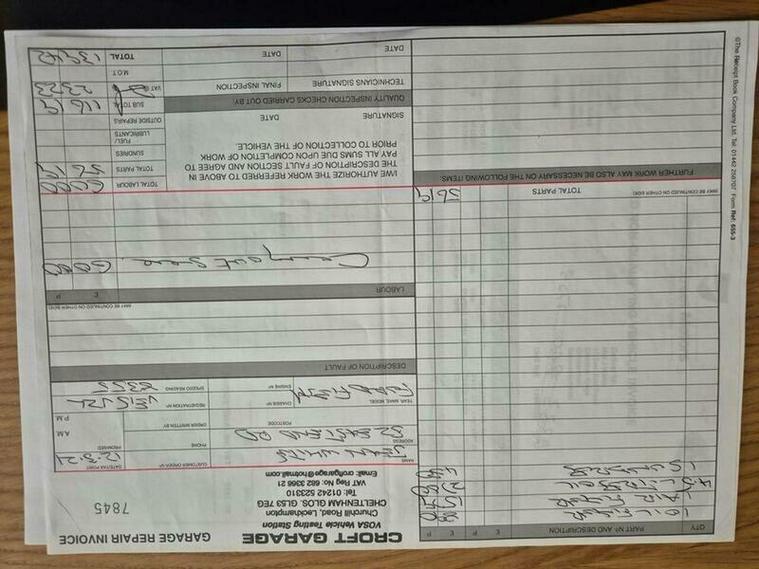 CROFT GARAGE
VOSA Vehicle Testing Station
Churchill Road, Leckhampton
CHELTENHAM GLOS. GL53 7EG
Tel: 01242 523310
VAT Reg No: 682 3366 21
Email: crofgarage@hotmail.com
GARAGE REPAIR INVOICE
7845
QTY
PART Nº AND DESCRIPTION
£
P
£
P
1 OIL FILTER
1 AIR FILTER
TOTAL PARTS
(MAY BE CONTINUED ON OTHER SIDE)
56 19
FURTHER WORK MAY ALSO BE NECESSARY ON THE FOLLOWING ITEMS:
NAME
CUSTOMER ORDER Nº
DATE/TAX POINT
12-3-21
ADDRESS
PHONE
PROMISED
A.M.
P.M.
POSTCODE
ORDER WRITTEN BY
YEAR, MAKE, MODEL
FORD FIESTA
CHASSIS Nº
REGISTRATION Nº
ENGINE Nº
SPEEDO READING
DESCRIPTION OF FAULT
(MAY BE CONTINUED ON OTHER SIDE)
LABOUR
£
P
Carry out service
60 00
I/WE AUTHORIZE THE WORK REFERRED TO ABOVE IN
THE DESCRIPTION OF FAULT SECTION AND AGREE TO
PAY ALL SUMS DUE UPON COMPLETION OF WORK
PRIOR TO COLLECTION OF THE VEHICLE.
SIGNATURE
DATE
QUALITY INSPECTION CHECKS CARRIED OUT BY:
TECHNICIANS SIGNATURE
FINAL INSPECTION
DATE
DATE
TOTAL LABOUR
60 00
TOTAL PARTS
56 19
SUNDRIES
FUEL/
LUBRICANTS
OUTSIDE REPAIRS
SUB TOTAL
116 19
VAT
23 23
M.O.T
TOTAL
139 42
©The Receipt Book Company Ltd. Tel: 01442 256707 Form Ref: 655-3